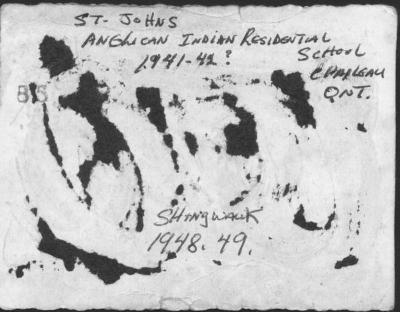 ST. JOHNS
ANGLICAN INDIAN RESIDENTIAL
SCHOOL
1941-42?
CHAPLEAU
ONT.
SHINGWAUK
1948.49.